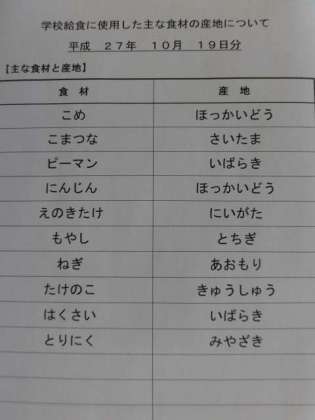 学校給食に使用した主な食材の産地について
平成　２７年　１０月　１９日分
【主な食材と産地】
食　材　産　地
こめ　ほっかいどう
こまつな　さいたま
ピーマン　いばらき
にんじん　ほっかいどう
えのきたけ　にいがた
もやし　とちぎ
ねぎ　あおもり
たけのこ　きゅうしゅう
はくさい　いばらき
とりにく　みやざき